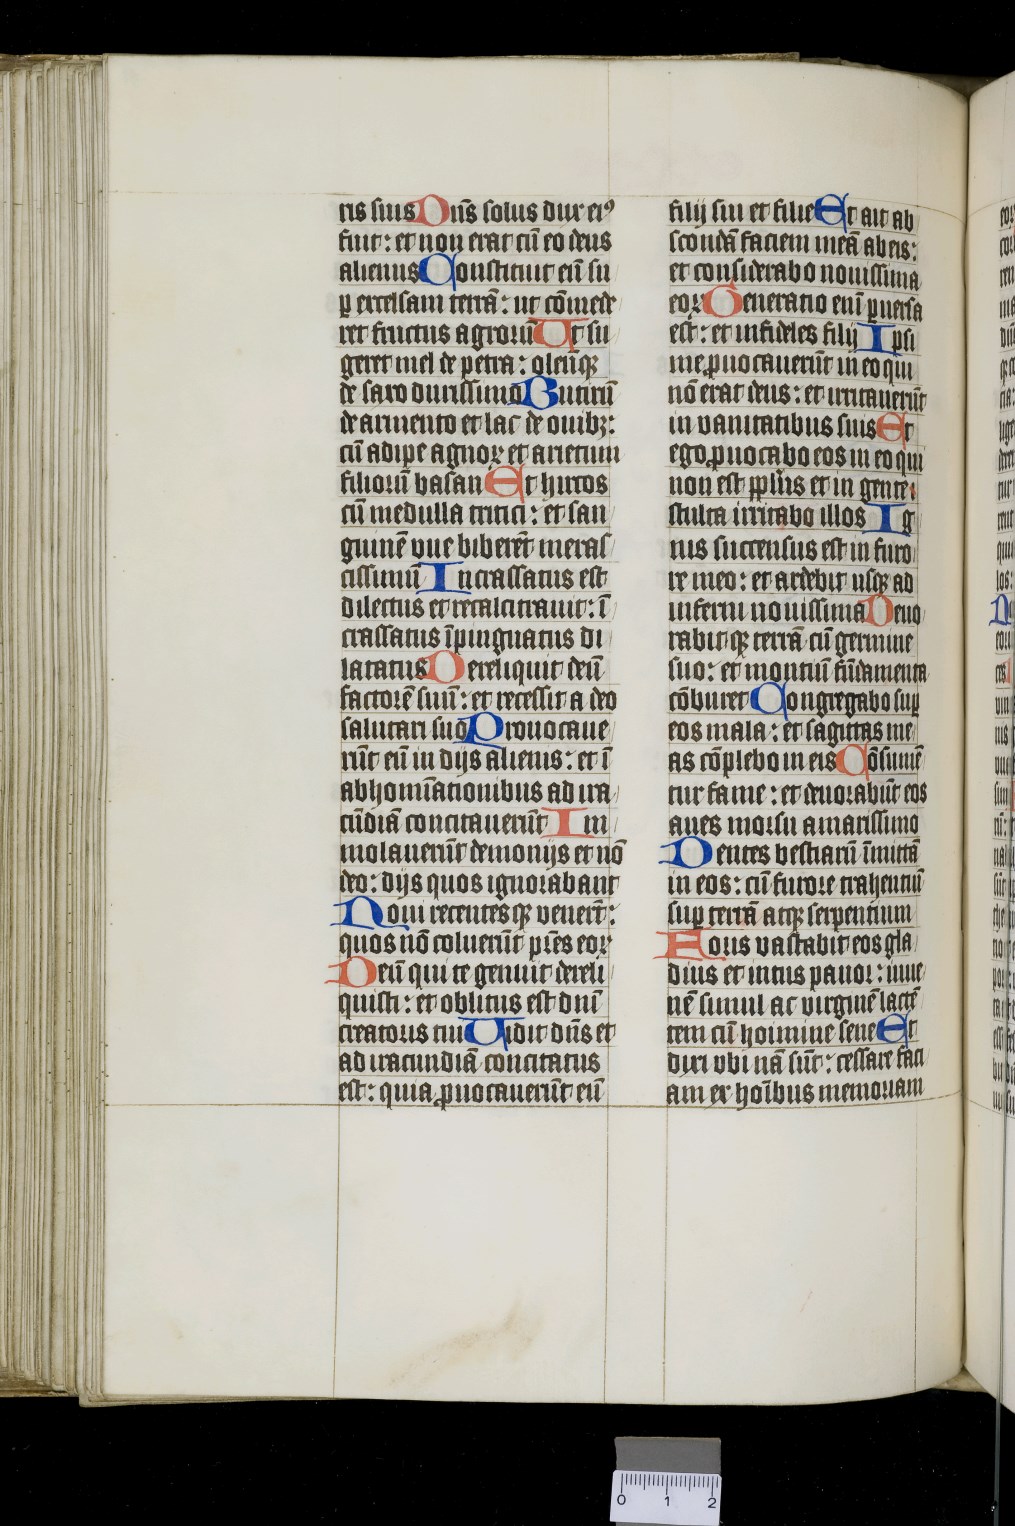 ris suis Dn̄s solus dux eiꝰ
fuit : et non erat cū eo deus
alienus Constituit eū su
ꝑ excelsam terrā : ut cōmede
ret fructus agrorū Ut su
geret mel de petra : oleūqꝫ
de saxo durissimo Butirū
de armento et lac de ouibꝫ :
cū adipe agnoꝝ et arietum
filiorū basan Et hircos
cū medulla tritici : et san
guinē vue biberēt merac
cissimū Incrassatus est
dilectus et recalcitrauit : ī
crassatus īpinguatus di
latatus Dereliquit deū
factorē suū : et recessit a deo
salutari suo Prouocaue
rūt eū in dijs alienis : et ī
abhomīationibus ad ira
cūdiā concitauerūt Im
molauerūt demonijs et nō
deo : dijs quos ignorabant
Noui recentesqꝫ venerūt :
quos nō coluerūt pr̄es eoꝝ
Deū qui te genuit dereli
quisti : et oblitus est dn̄i
creatoris tui Uidit dn̄s et
ad iracundiā concitatus
est : quia ꝓuocauerūt eū
filij sui et filie Et ait ab
scondā faciem meā ab eis :
et considerabo nouissima
eoꝝ Generatio eni ꝑuersa
est : et infideles filij Ipsi
me ꝓuocauerūt in eo qui
nō erat deus : et irritauerūt
in vanitatibus suis Et
ego ꝓuocabo eos in eo qui
non est ppl̄us et in gente
stulta irritabo illos Ig
nis succensus est in furo
re meo : et ardebit usqꝫ ad
inferni nouissima Deuo
rabitqꝫ terrā cū germine
suo : et montiū fūdamenta
cōburet Congregabo suꝑ
eos mala : et sagittas me
as cōplebo in eis Cōsumē
tur fame : et deuorabūt eos
aues morsu amarissimo
Dentes bestiarū īmittā
in eos : cū furore trahentiū
suꝑ terrā atqꝫ serpentium
Foris vastabit eos gla
dius et intus pauor : iuue
nē simul ac virginē lactē
tem cū homine sene Et
dixi vbi nā sūt : cessare faci
am ex hoībus memoriam